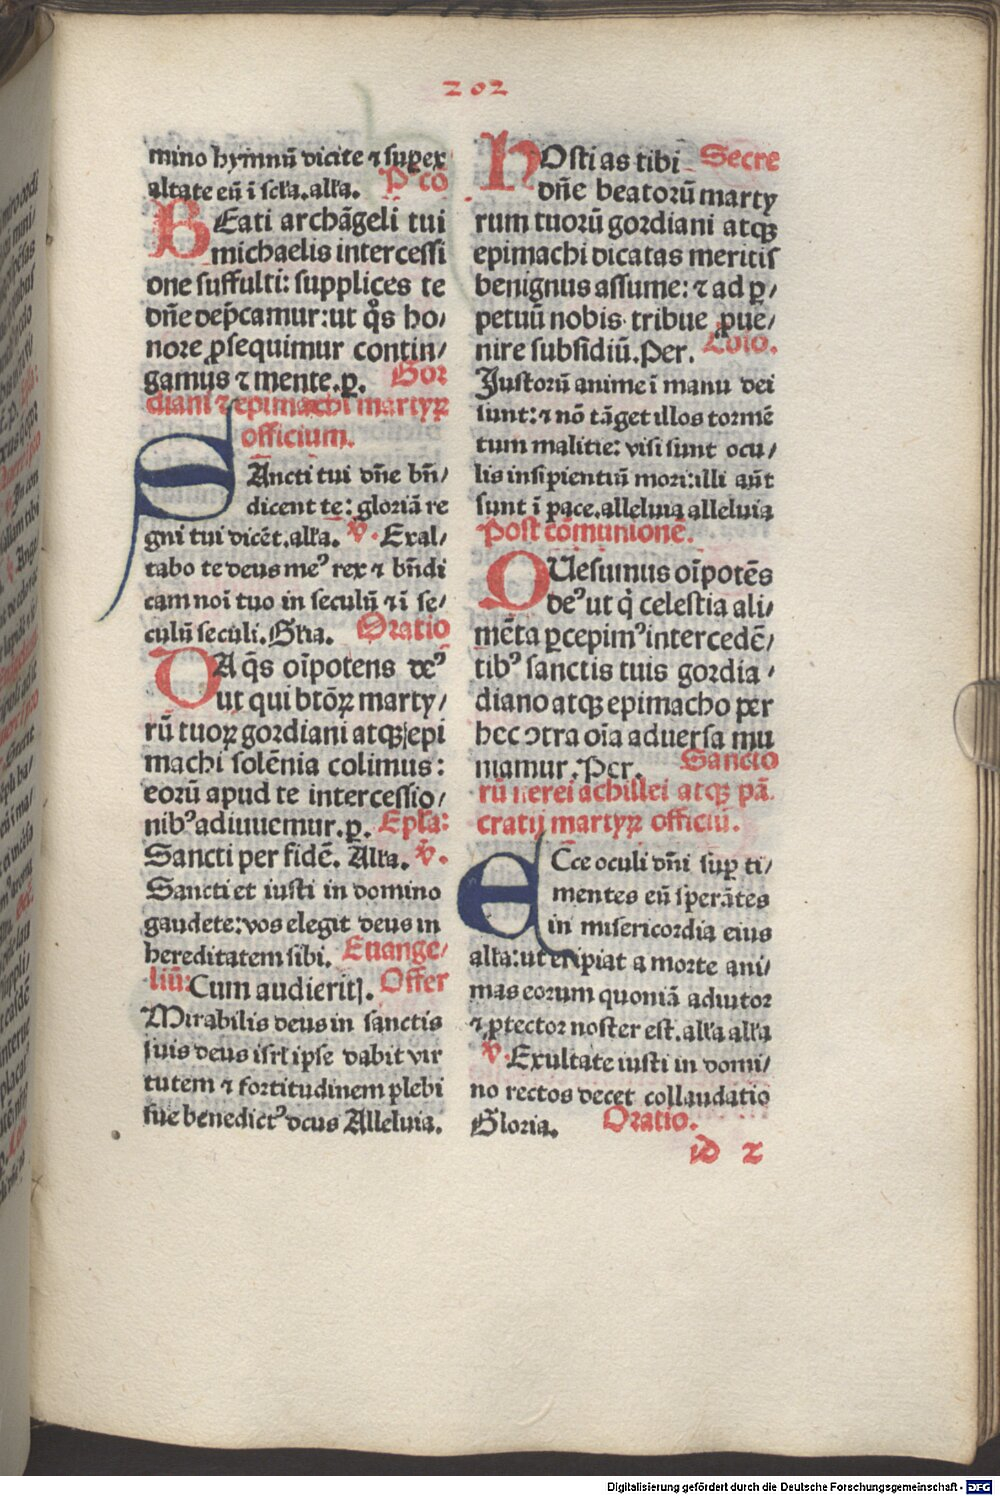 202
mino hymnū dicite ⁊ super
altate eū ī scĺa.alĺa. P̄ cō
BEati archāgeli tui
michaelis intercessi
one suffulti: supplices te
dn̄e dep̄camur:ut qͦs ho/
nore ꝓsequimur contin/
gamus ⁊ mente.ꝑ. Gor
diani ⁊ epimachi martyꝝ
officium.
SAncti tui dn̄e bn̄/
dicent te: gloriā re
gni tui dicēt.alĺa. ℣. Exal/
tabo te deus meꝰ rex ⁊ bn̄di
cam noī tuo in seculū ⁊ ī se/
culū seculi.Gĺia. Oratio
DA q̄s oīpotens deꝰ
ut qui btōꝝ marty/
rū tuoꝝ gordiani atqꝫ epi
machi solēnia colimus:
eorū apud te intercessio/
nibꝰ adiuuemur.ꝑ. Epĺa:
Sancti per fidē. Alĺa. ℣.
Sancti et iusti in domino
gaudete:vos elegit deus in
hereditatem sibi. Euange/
liū: Cum audieritꝭ. Offer
Mirabilis deus in sanctis
suis deus isrĺ ipse dabit vir
tutem ⁊ fortitudinem plebi
sue benedictꝰ deus Alleluia.
HOstias tibi Secre
dn̄e beatorū marty
rum tuorū gordiani atqꝫ
epimachi dicatas meritis
benignus assume: ⁊ ad ꝑ/
petuū nobis tribue ꝓue/
nire subsidiū.Per. Cōio.
Justorū anime ī manu dei
sunt:⁊ nō tāget illos tormē
tum malitie: visi sunt ocu/
lis insipientiū mori:illi aūt
sunt ī pace.alleluia alleluia
Post cōmunionē.
QUesumus oīpotēs
deꝰ ut q̄ celestia ali/
mēta ꝑcepimꝰ intercedē/
tibꝰ sanctis tuis gordia/
diano atqꝫ epimacho per
hec ↄtra oīa aduersa mu
niamur.Per. Sancto
rū nerei achillei atqꝫ pā
cratij martyꝝ officiū.
ECce oculi dn̄i suꝑ ti/
mentes eū sperātes
in misericordia eius
alĺa:ut eripiat a morte ani/
mas eorum quoniā adiutor
⁊ ꝓtector noster est.alĺa alĺa
℣. Exultate iusti in domi/
no rectos decet collaudatio
Gloria. Oratio.
D 2
Digitalisierung gefördert durch die Deutsche Forschungsgemeinschaft - DFG